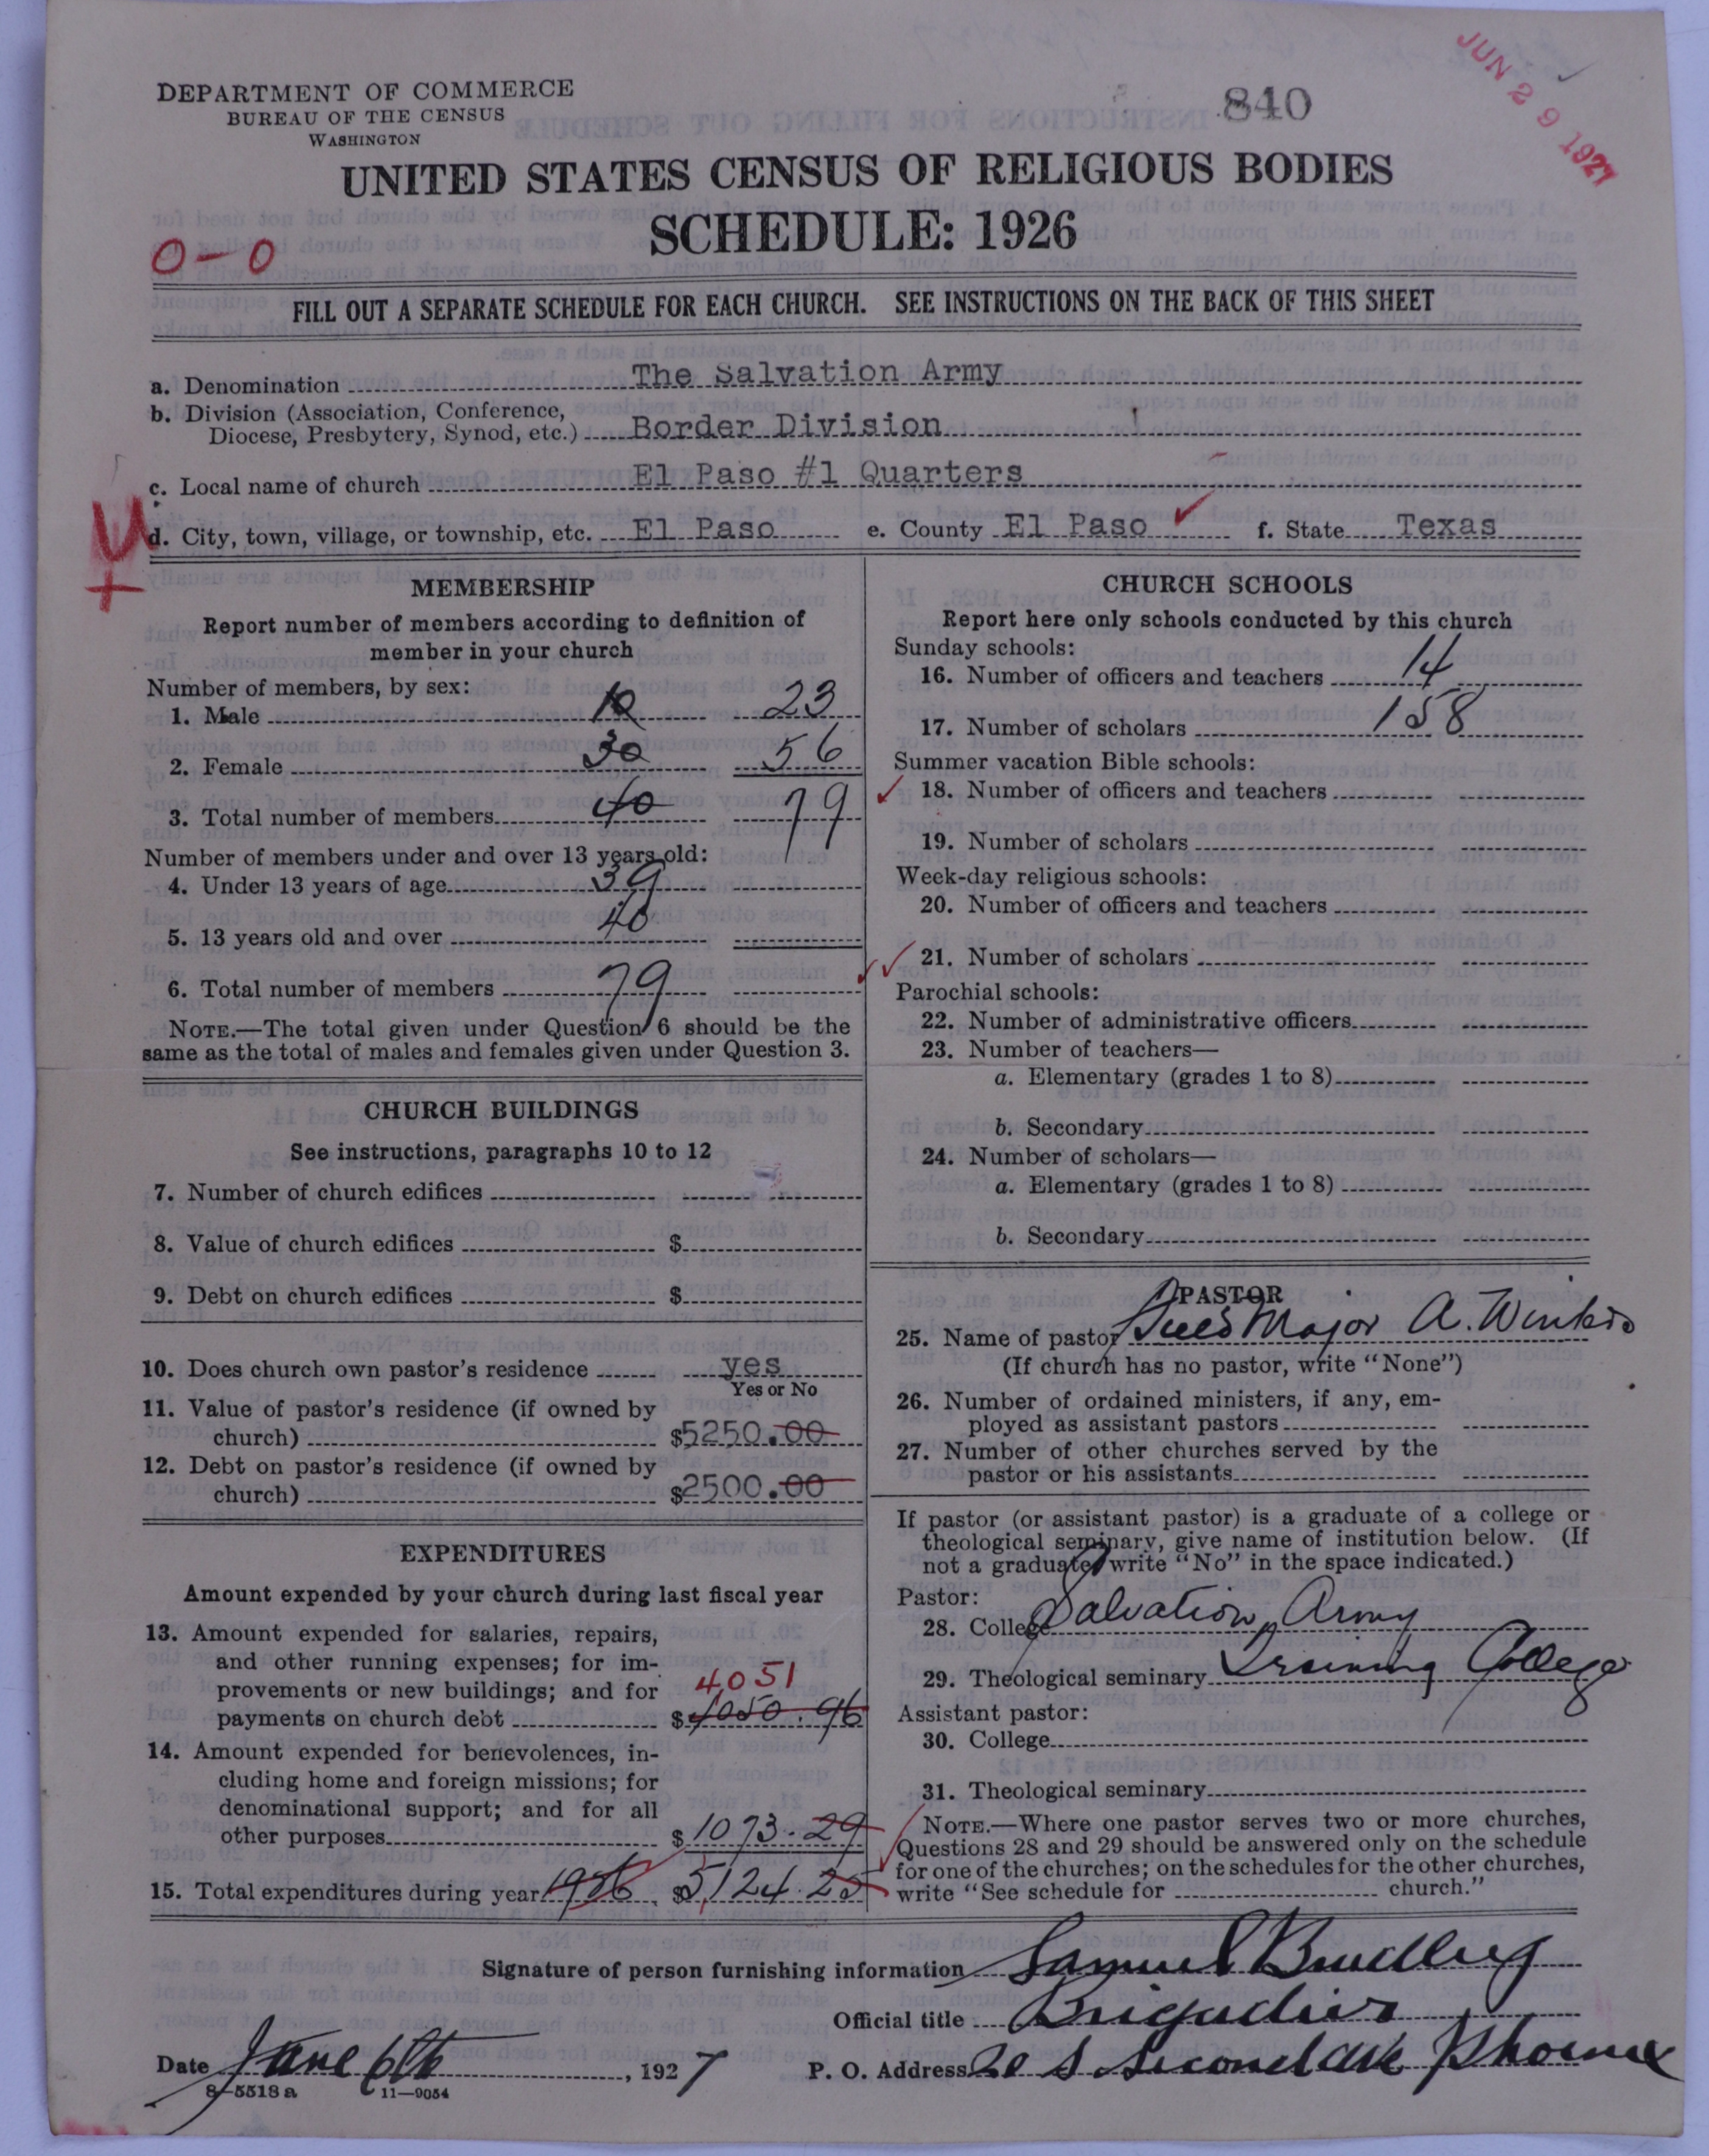 DEPARTMENT OF COMMERCE
BUREAU OF THE CENSUS
WASHINGTON
840
JUN 29 1927
UNITED STATES CENSUS OF RELIGIOUS BODIES
SCHEDULE: 1926
0-0
FILL OUT A SEPARATE SCHEDULE FOR EACH CHURCH. SEE INSTRUCTIONS ON THE BACK OF THIS SHEET
a. Denomination The Salvation Army
b. Division (Association, Conference,
Diocese, Presbytery, Synod, etc.) Border Division
c. Local name of church El Paso #1 Quarters
U
d. City, town, village, or township, etc. El Paso e. County El Paso f. State Texas
+
MEMBERSHIP
Report number of members according to definition of
member in your church
Number of members, by sex:
1. Male 10 23
2. Female 30 56
3. Total number of members 40 79
Number of members under and over 13 years old:
4. Under 13 years of age 39
5. 13 years old and over 40
6. Total number of members 79
NOTE.—The total given under Question 6 should be the
same as the total of males and females given under Question 3.
CHURCH BUILDINGS
See instructions, paragraphs 10 to 12
7. Number of church edifices
8. Value of church edifices $
9. Debt on church edifices $
10. Does church own pastor's residence yes
Yes or No
11. Value of pastor's residence (if owned by
church) $5250.00
12. Debt on pastor's residence (if owned by
church) $2500.00
EXPENDITURES
Amount expended by your church during last fiscal year
13. Amount expended for salaries, repairs,
and other running expenses; for im-
provements or new buildings; and for 4051
payments on church debt $4050.96
14. Amount expended for benevolences, in-
cluding home and foreign missions; for
denominational support; and for all
other purposes $1073.29
15. Total expenditures during year 1926 $5124.25
CHURCH SCHOOLS
Report here only schools conducted by this church
Sunday schools:
16. Number of officers and teachers 14
17. Number of scholars 158
Summer vacation Bible schools:
18. Number of officers and teachers
19. Number of scholars
Week-day religious schools:
20. Number of officers and teachers
21. Number of scholars
Parochial schools:
22. Number of administrative officers
23. Number of teachers—
a. Elementary (grades 1 to 8)
b. Secondary
24. Number of scholars—
a. Elementary (grades 1 to 8)
b. Secondary
PASTOR
25. Name of pastor Major A.
(If church has no pastor, write "None")
26. Number of ordained ministers, if any, em-
ployed as assistant pastors
27. Number of other churches served by the
pastor or his assistants
If pastor (or assistant pastor) is a graduate of a college or
theological seminary, give name of institution below. (If
not a graduate, write "No" in the space indicated.)
Pastor:
28. College Salvation Army
29. Theological seminary Training College
Assistant pastor:
30. College
31. Theological seminary
NOTE.—Where one pastor serves two or more churches,
Questions 28 and 29 should be answered only on the schedule
for one of the churches; on the schedules for the other churches,
write "See schedule for church."
Signature of person furnishing information Samuel
Official title Brigadier
Date June 6th, 1927 P. O. Address 20 S. Second Ave Phoenix
8-5518 a 11—9054